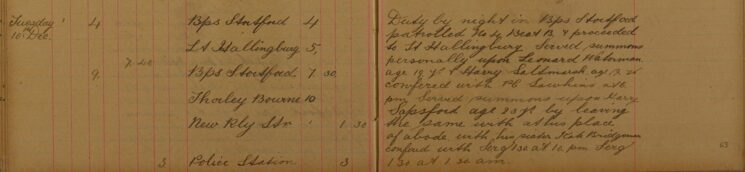 Tuesday 4 Bps Stortford 4 Duty by night in Bps Stortford
16 Dec. Lt Hallingbury 5 patrolled No 4 Beat & proceeded
7 30 to Lt Hallingbury Served summons
9 Bps Stortford. 7 30 personally upon Leonard Waterman
age 19 yrs & Harry Saltmarsh age
Thorley Bourne 10 confered with PC
pm Served summons upon Harry
New Rly Str 1 30 Sapsford age 23 yrs by leaving
the same with at his place
of abode with his sister Kate Bridgeman
3 Police Station 3 conferd with Serg 130 at 10 pm Serg
130 at 1.30 am.
63